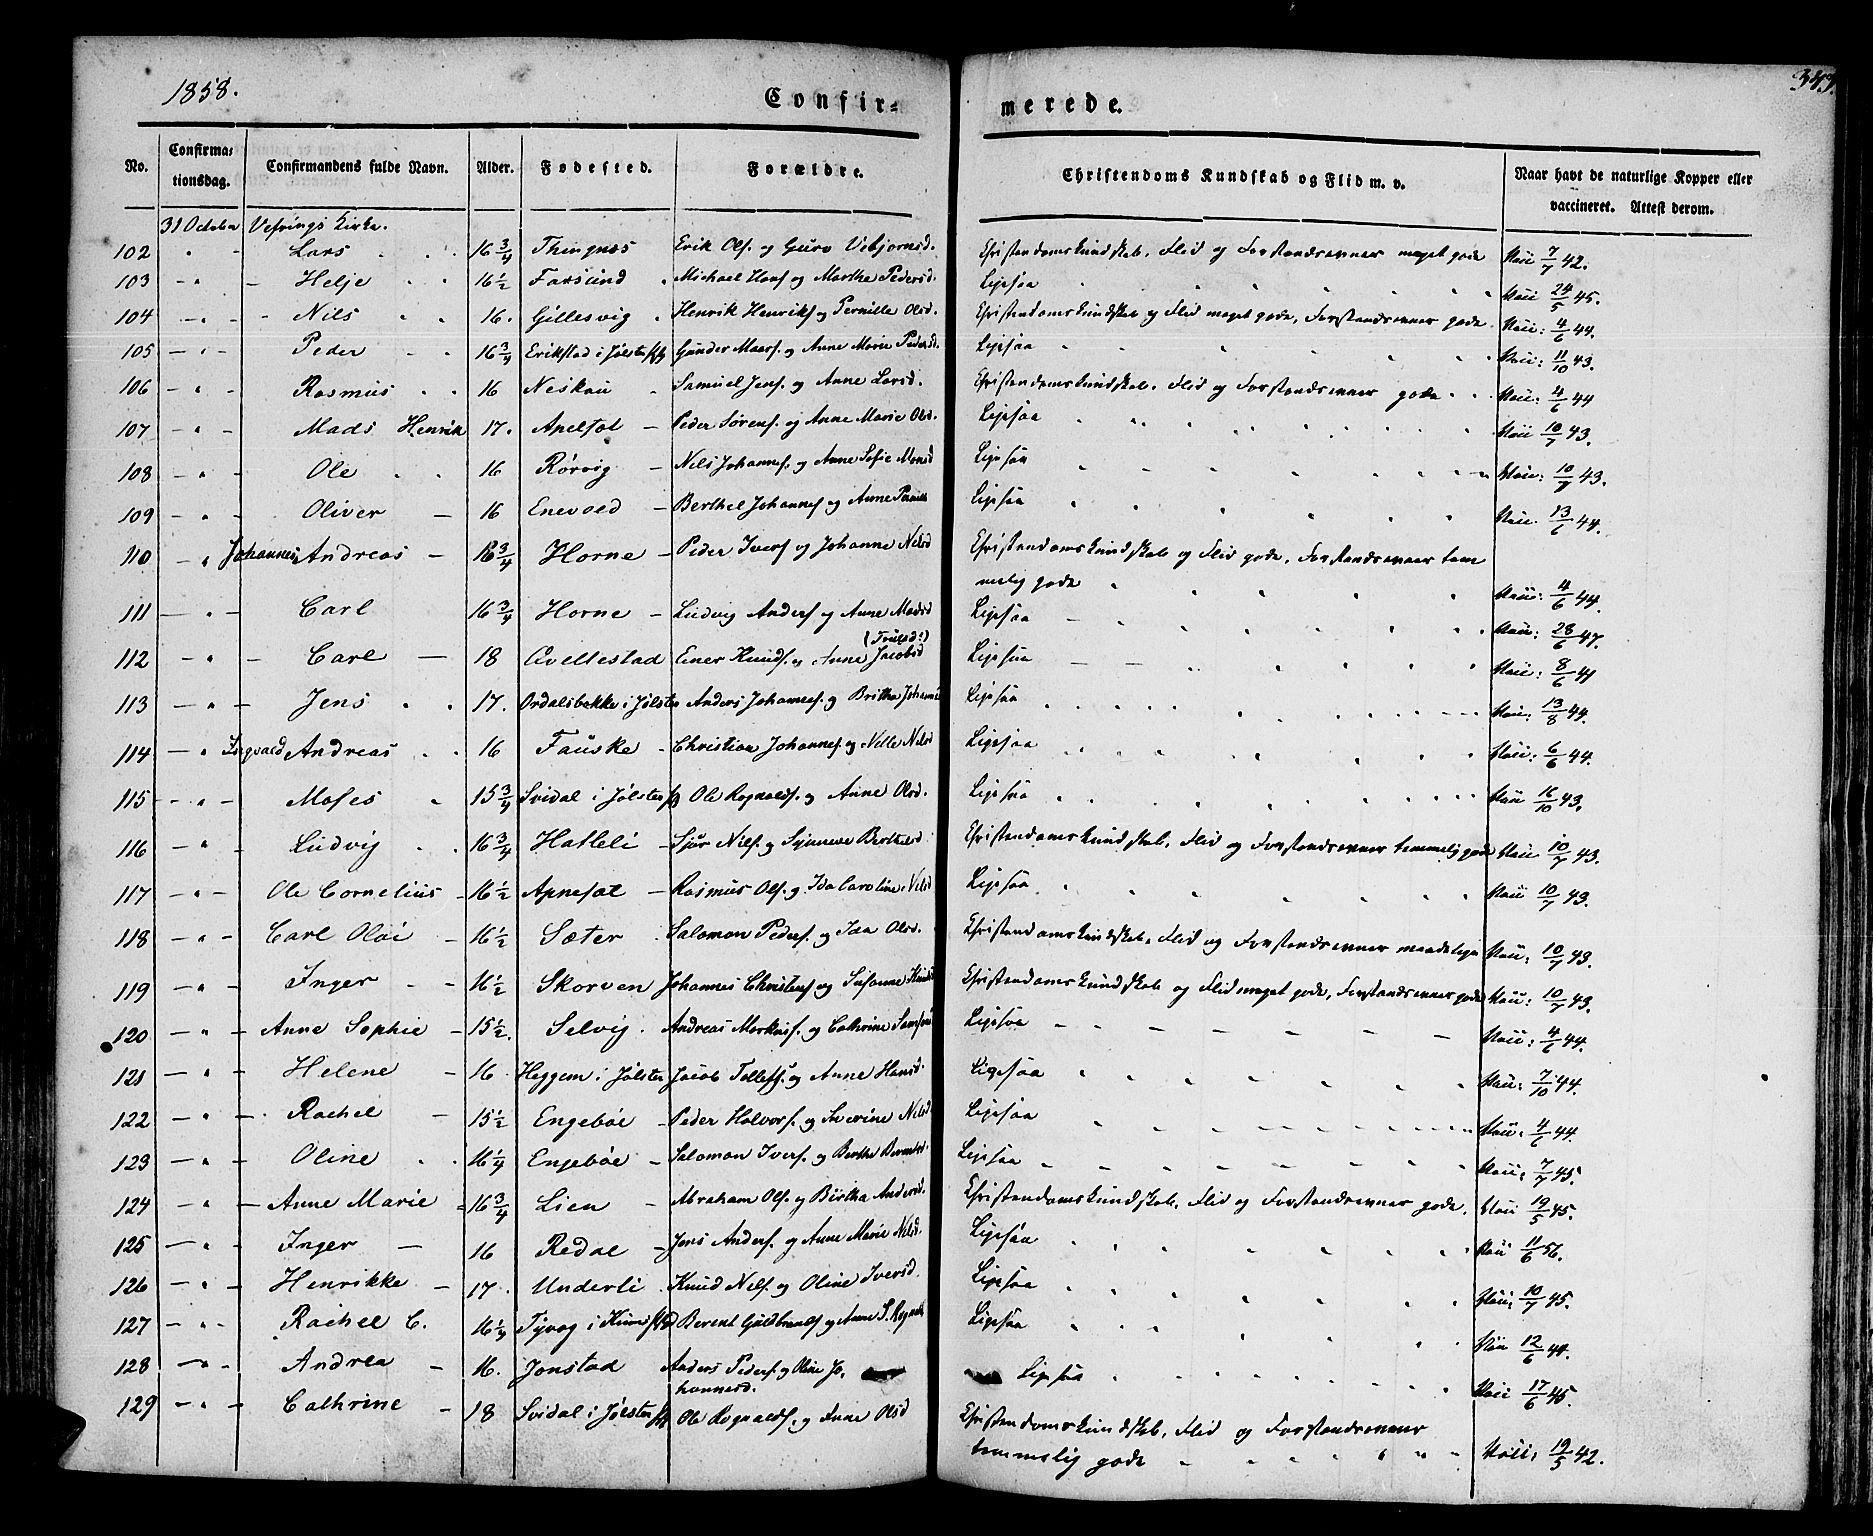 1858.
343.
Confir=
merede.
No. Confirma=tionsdag. Confirmandens fulde Navn. Alder. Fødested. Forældre. Christendoms Kundskab og Flid m. v. Naar havt de naturlige Kopper eller vaccineret. Attest derom.
31 October Vefrings Kirke.
102 " Lars 16 3/4 Thingnæs Erik Ols. og Guro Vebjornsd. Christendomskundskab, Flid og Forstandsevner meget gode 7/7 42.
103 — " — Helje 16 1/2 Farsund Michael Hans. og Marthe Pedersd. Ligesaa 24/5 45.
104 — " — Nils 16. Gillesvig Henrik Henriks. og Pernille Olsd. Christendomskundskab og Flid meget gode, Forstandsevner gode 4/6 44.
105 — " — Peder 16 3/4 Erikstad i Jølster Gunder Maars. og Anne Marie Pedersd. Ligesaa 11/10 43.
106 — " — Rasmus 16 Neskau Samuel Jens. og Anne Larsd. Christendomskundskab, Flid og Forstandsevner gode 4/6 44
107 — " — Mads Henrik 17. Apelsæt — Peder Sørens. og Anne Marie Olsd. Ligesaa 10/7 43.
108 — " — Ole 16 Rørvig — Nils Johannes. og Anne Sofie Monsd Ligesaa 10/7 43.
109 — " — Oliver — 16 Enevold — Berthel Johannes. og Anne Ligesaa 13/6 44.
110 — " Johannes Andreas — 16 3/4 Horne — Peder Ivers. og Johanne Nilsd Christendomskundskab og Flid gode, Forstandsevner tem
melig gode 4/6 44.
111 — " — Carl 16 3/4 Horne — Ludvig Anders. og Anne Madsd Ligesaa 28/6 47.
(Trulsd?)
112 — " — Carl — 18 Avellestad Einer Knuds. og Anne Jacobsd Ligesaa 8/6 41
113 — " — Jens 17. Ordalsbakke i Jølster Anders Johannes. og Britha Johannes Ligesaa 13/8 44.
114 — " Ingvald Andreas 16 Fauske Christian Johannes. og Nille Nilsd Ligesaa 6/6 44.
115 — " — Moses 15 3/4 Svidal i Jølster Ole Rognalds. og Anne Olsd. Ligesaa 16/10 43.
116 — " — Ludvig 16 3/4 Hatleli — Sjur Nils. og Synneve Berthelsd Christendomskundskab, Flid og Forstandsevner temmelig gode 10/7 43.
117 — " — Ole Cornelius 16 1/2 Apnesæt — Rasmus Ols. og Ida Caroline Nilsd Ligesaa 10/7 43.
118 — " — Carl Olai — 16 1/2 Sæter Salomon Peders. og Ida Olsd. Christendomskundskab, Flid og Forstandsevner maadelige 10/7 43.
119 — " — Inger 16 1/2 Skorven Johannes Christens. og Susanne Christendomskundskab og Flid meget gode, Forstandsevner gode 10/7 43.
120 — " — Anne Sophie — 15 1/2. Selvig. Andreas Markus. og Cathrine Ligesaa 4/6 44.
121 — " — Helene — 16 Heggem i Jølster Jacob Tollefs. og Anne Hansd. Ligesaa 7/10 44.
122 — " — Rachel — 15 1/2 Engebøe Peder Halvors. og Severine Nilsd Ligesaa 4/6 44.
123 — " — Oline 16 1/4 Engebøe — Salomon Ivers. og Berthe Ligesaa 7/7 45.
124 — " — Anne Marie 16 3/4 Lien Abraham Ols. og Birtha Andersd. Christendomskundskab, Flid og Forstandsevner gode. 19/5 45.
125 — " — Inger — 16 Redal — Jens Anders. og Anne Marie Nilsd. Ligesaa 11/6 56.
126 — " — Henrikke — 17. Underli Knud Nils. og Oline Iversd. Ligesaa 10/7 45.
127 — " — Rachel C. 16 1/4 Tyvog i Berent Guldbrands. og Anne S. Ligesaa 12/6 44.
128 — " — Andrea — 16. Jonstad Anders Peders. og Oline Jo=
hannesd. Ligesaa 17/6 45.
129 — " — Cathrine — 18 Svidal i Jølster Ole Rognalds. og Anne Olsd Christendomskundskab, Flid og Forstandsevner
temmelig gode 19/5 42.